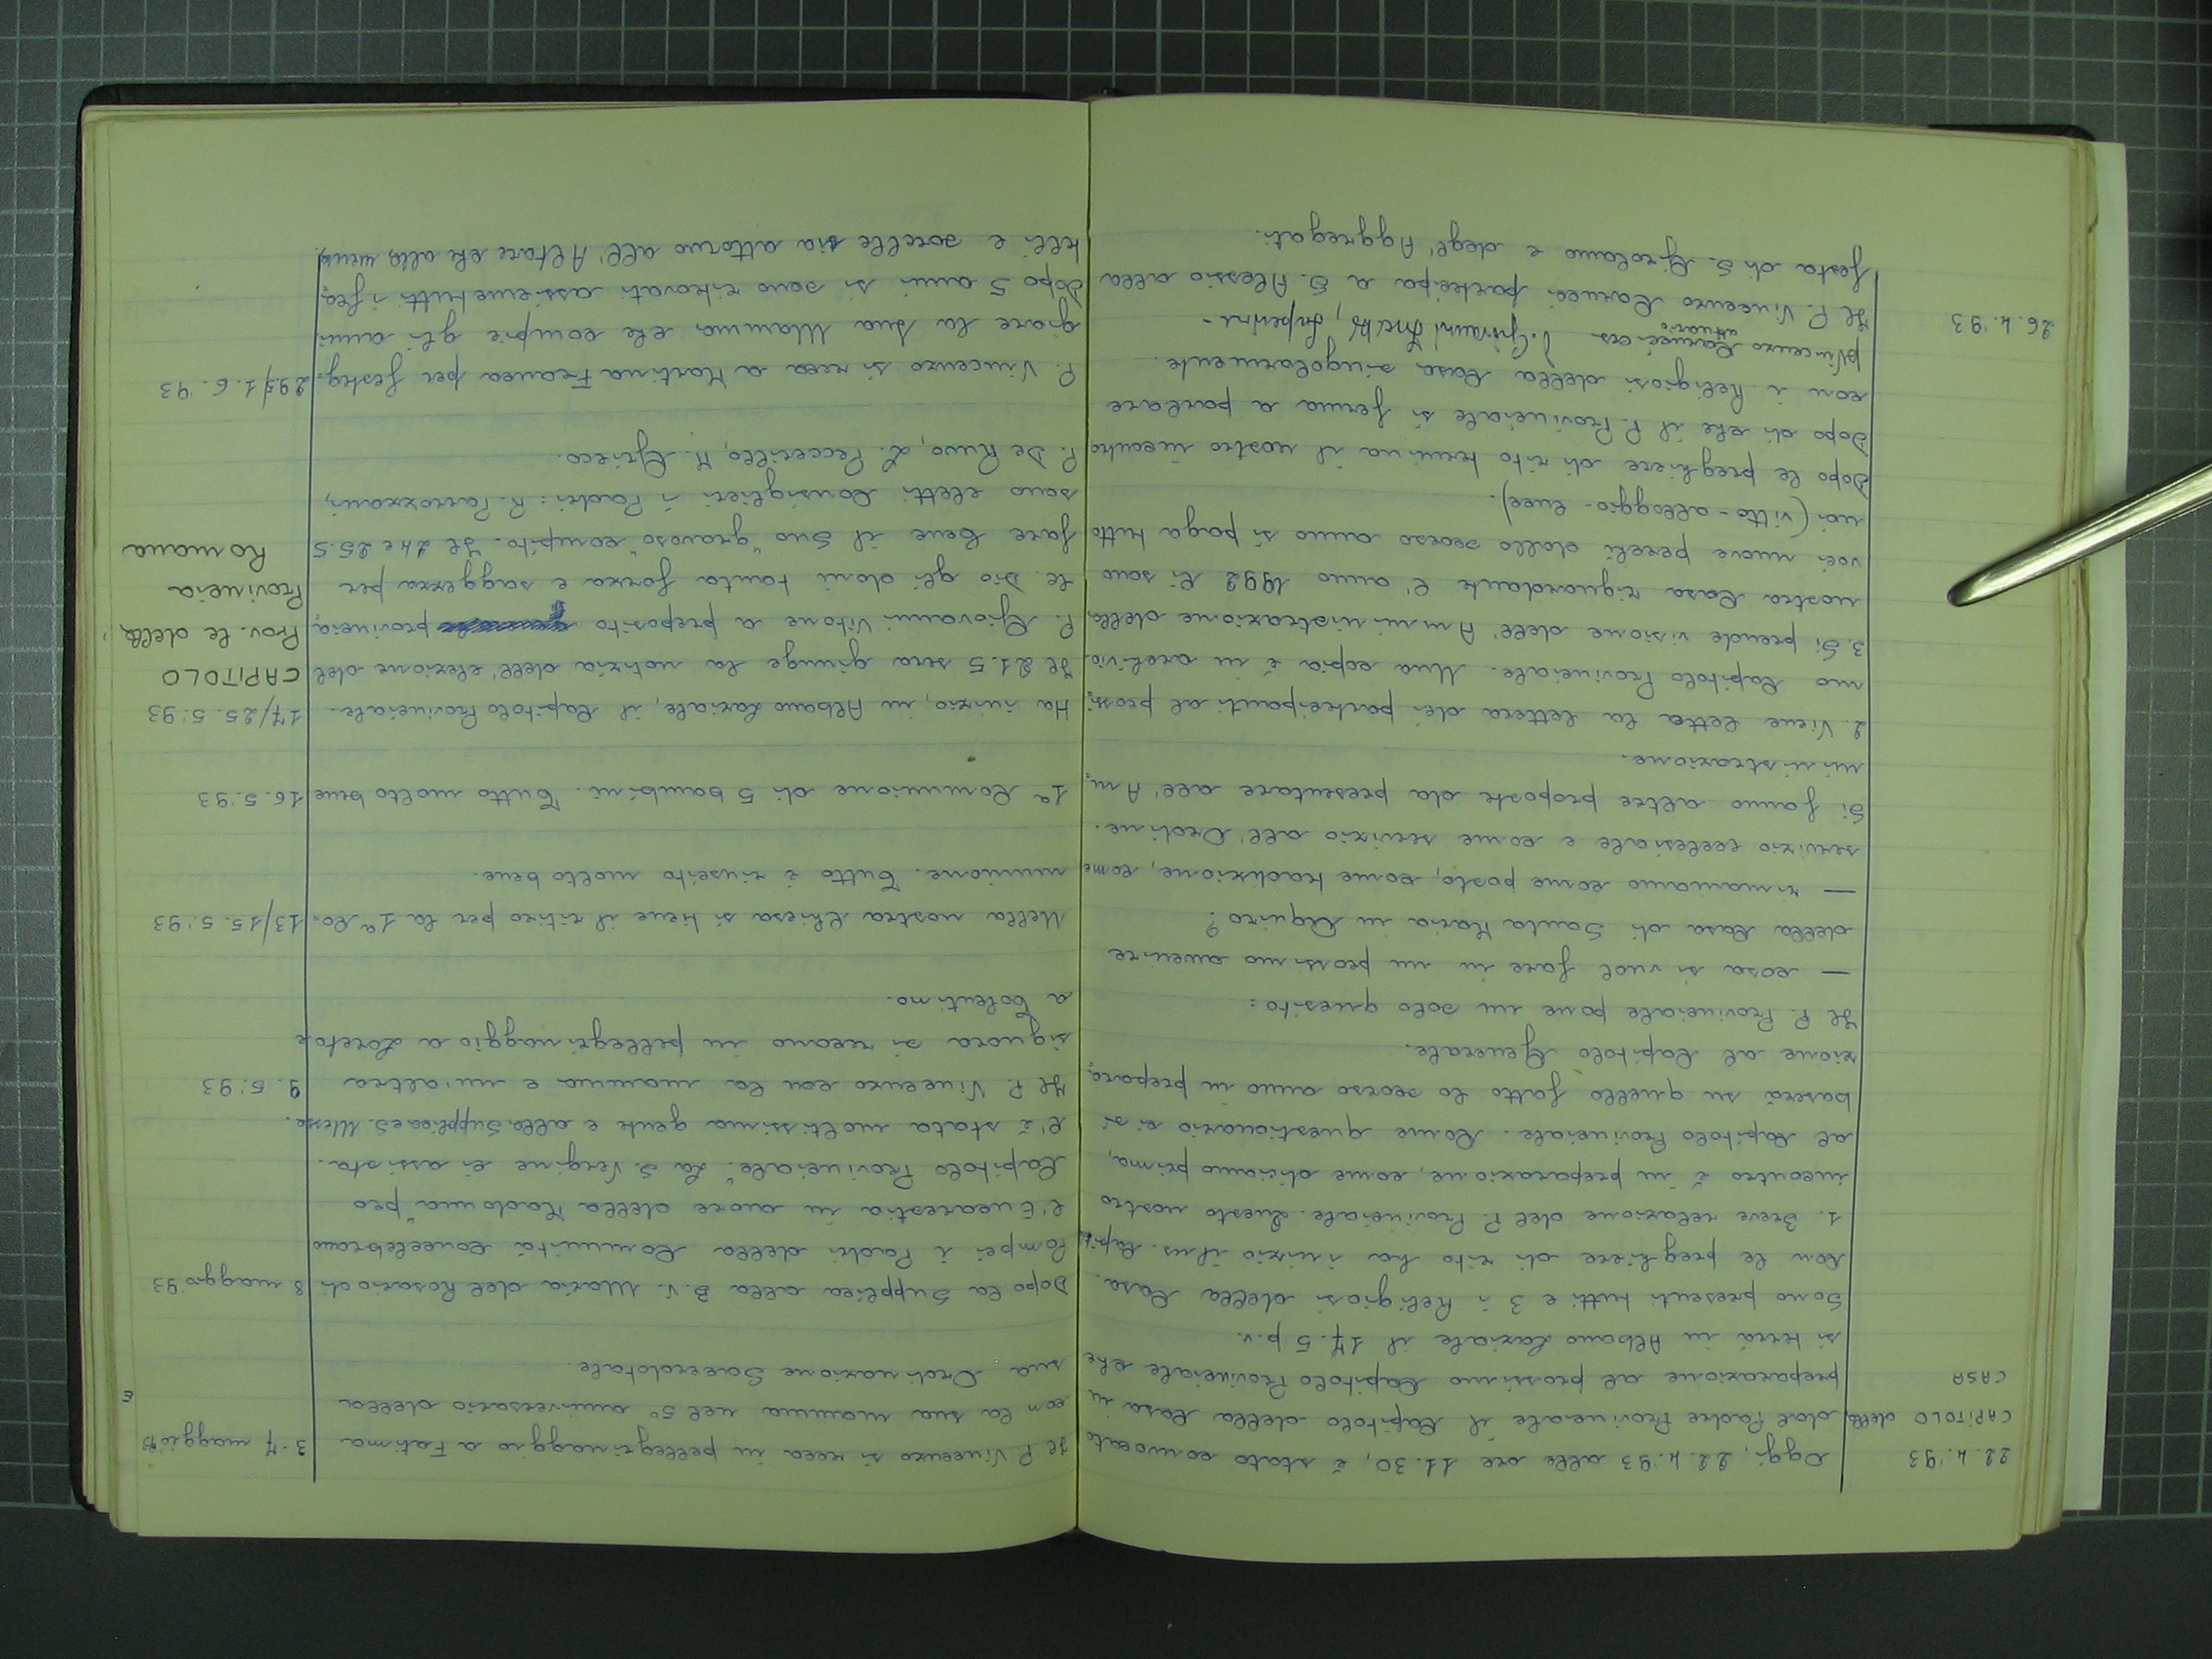 22.4.'93
CAPITOLO della
CASA
Oggi, 22.4.'93 alle ore 11.30, è stato convocato
dal Padre Provinciale il Capitolo della Casa in
preparazione al prossimo Capitolo Provinciale che
si terrà in Albano Laziale il 17.5 p.v.
Sono presenti tutti e 3 i Religiosi della Casa.
Con le preghiere di rito ha inizio il ns. Capitolo
1. Breve relazione del P. Provinciale. Questo nostro
incontro è in preparazione, come diciamo prima,
al Capitolo Provinciale. Come questionario ci si
baserà su quello fatto lo scorso anno in prepara=
zione al Capitolo Generale.
Il P. Provinciale pone un solo quesito:
— cosa si vuol fare in un prossimo avvenire
della Casa di Santa Maria in Aquiro?
— rimaniamo come posto, come tradizione, come
servizio ecclesiale e come servizio all'Ordine.
Si fanno altre proposte da presentare all'Am=
ministrazione.
2. Viene letta la lettera dei partecipanti al prossi=
mo Capitolo Provinciale. Una copia è in archivio.
3. Si prende visione dell'Amministrazione della
nostra Casa riguardante l'anno 1992. Ci sono
voci nuove perché dallo scorso anno si paga tutto
noi (vitto - alloggio - luce).
Dopo le preghiere di rito termina il nostro incontro,
dopo di che il P. Provinciale si ferma a parlare
con i Religiosi della Casa singolarmente.
p. Vincenzo Carucci crs
attuario
26.4.'93
Il P. Vincenzo Carucci partecipa a S. Alessio alla
festa di S. Girolamo e degl'Aggregati.
3-7 maggio '93
Il P. Vincenzo si reca in pellegrinaggio a Fatima
con la sua mamma nel 5° anniversario della
sua Ordinazione Sacerdotale.
8 maggio '93
Dopo la Supplica alla B. V. Maria del Rosario di
Pompei i Padri della Comunità concelebrano
l'Eucarestia in onore della Madonna "pro
Capitolo Provinciale". La S. Vergine ci assista.
C'è stata moltissima gente e alla Supplica e S. Messa.
9.5.'93
Il P. Vincenzo con la mamma e un'altra
signora si recano in pellegrinaggio a Loreto e
a Tolentino.
13/15.5.'93
Nella nostra Chiesa si tiene il ritiro per la 1ª Co=
munione. Tutto è riuscito molto bene.
16.5.'93
1ª Comunione di 5 bambini. Tutto molto bene
17/25.5.'93
CAPITOLO
Prov.le della
Provincia
Romana
Ha inizio, in Albano Laziale, il Capitolo Provinciale.
Il 21.5 sera giunge la notizia dell'elezione del
P. Giovanni Vitone a preposito provincia=
le. Dio gli doni tanta forza e saggezza per
fare bene il Suo "gravoso" compito. Il 24 e 25.5
sono eletti Consiglieri i Padri: R. Parrozzani,
P. De Ruvo, L. Peccerillo, M. Grieco.
29.5/1.6.'93
P. Vincenzo si reca a Martina Franca per festeg=
giare la sua Mamma che compie gli anni
Dopo 5 anni si sono ritrovati assieme tutti i fra=
telli e sorelle sia attorno all'Altare che alla mensa.